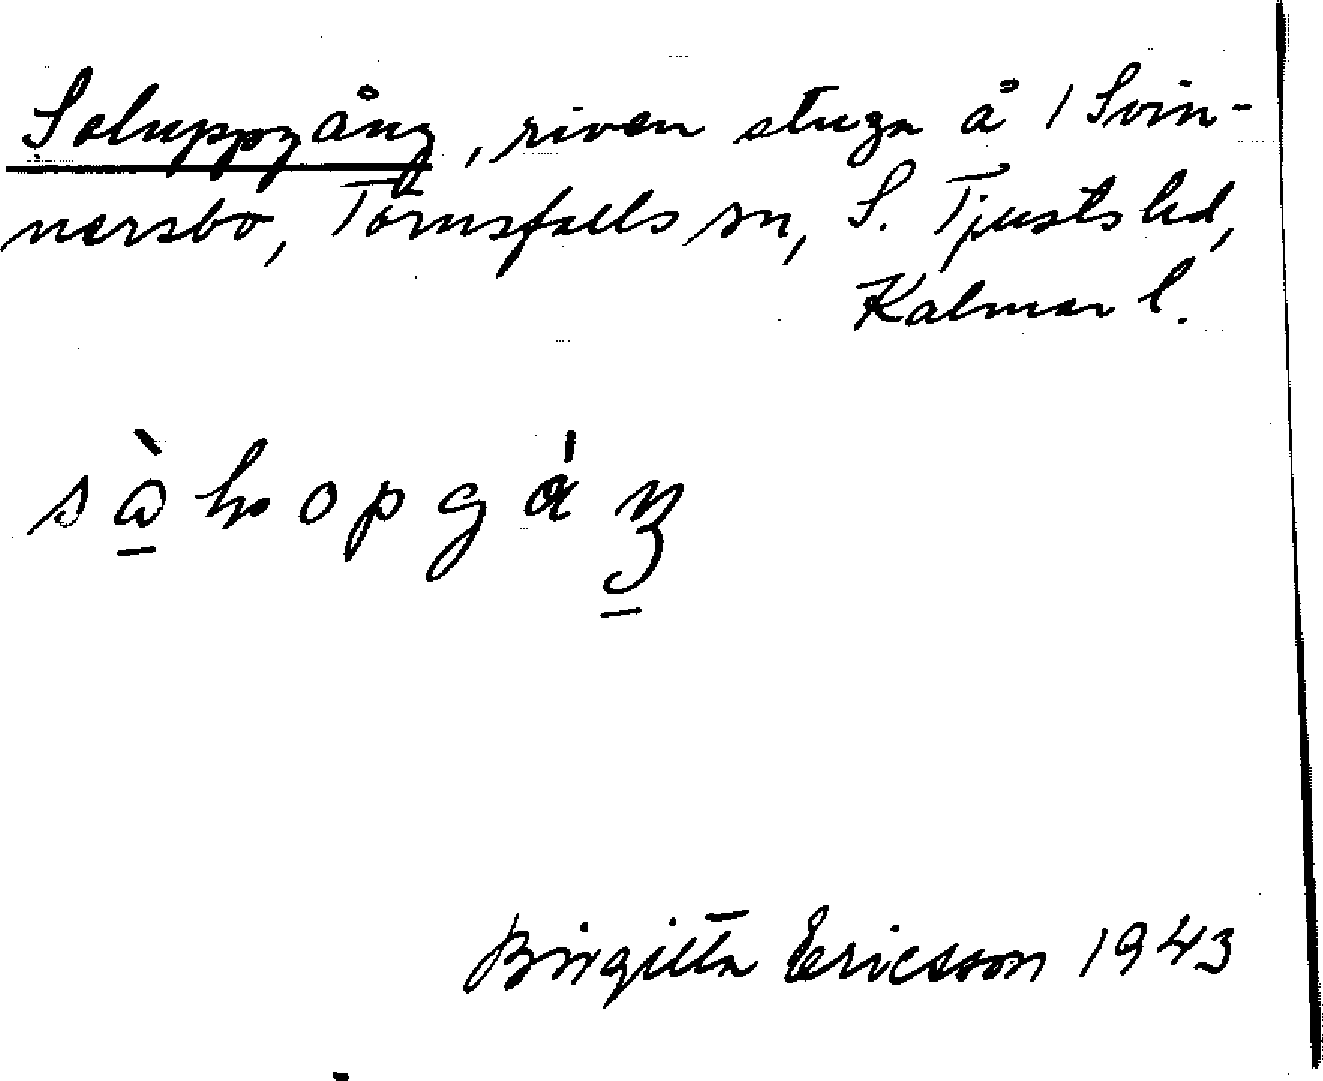 Soluppgång, riven stuga å 1 Svin-
nersbo, Törnsfalls sn, S. Tjusts hd,
Kalmar l.
Birgitta Ericsson 1943